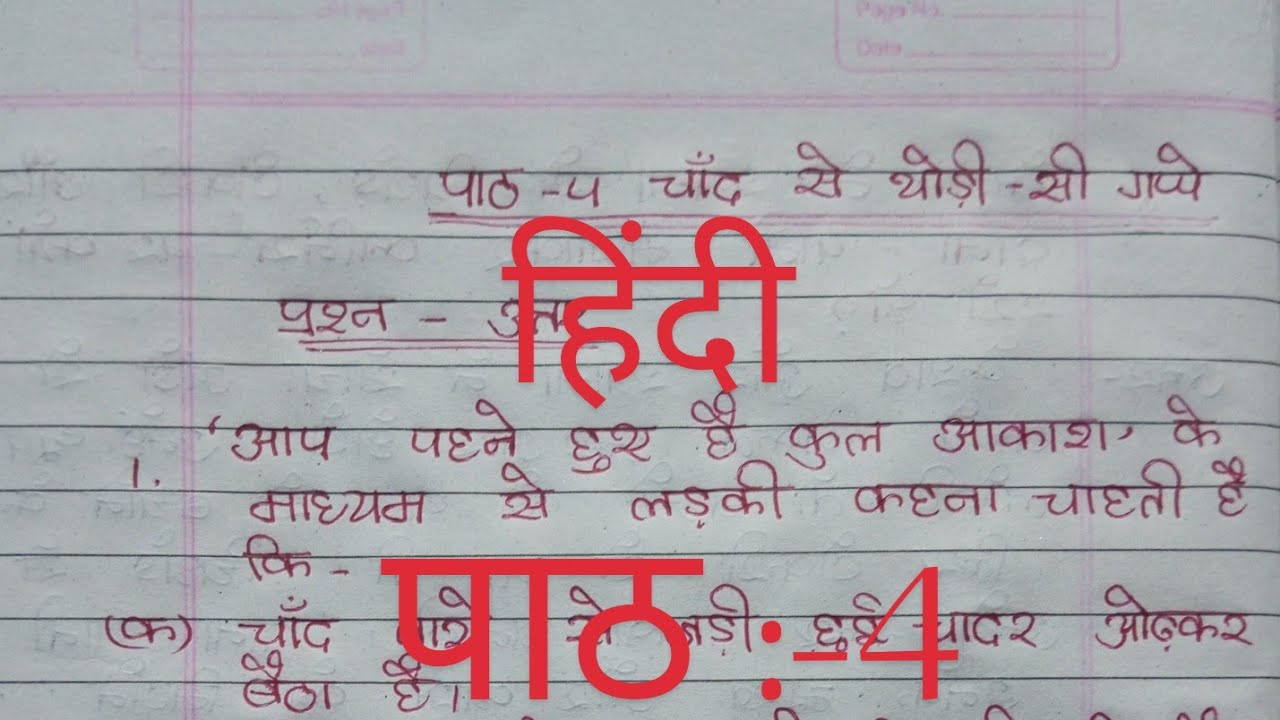 Page No.
Date
पाठ -५ चाँद से थोड़ी -सी गप्पे
हिंदी
प्रश्न -
'आप पहने हुए हैं कुल आकाश' के
1.
माध्यम से लड़की कहना चाहती है
कि -
पाठ:-4
(क) चाँद तारों से जड़ी हुई चादर ओढ़कर
बैठा है।